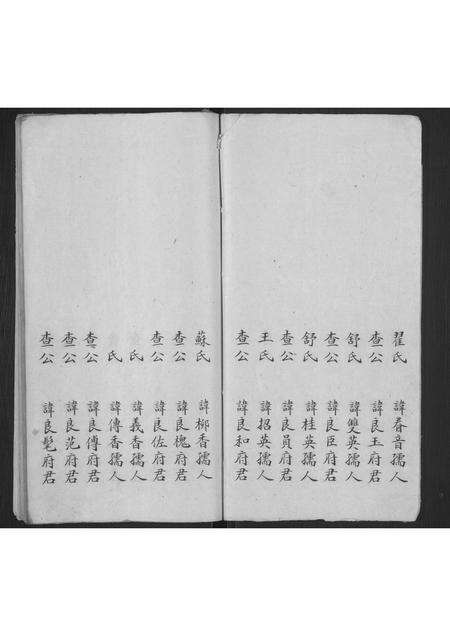 翟氏 諱春音孺人
查公 諱良玉府君
舒氏 諱雙英孺人
查公 諱良臣府君
舒氏 諱桂英孺人
查公 諱良員府君
王氏 諱招英孺人
查公 諱良和府君
蘇氏 諱柳香孺人
查公 諱良槐府君
查公 諱良佐府君
氏 諱義香孺人
氏 諱傳香孺人
查公 諱良傅府君
查公 諱良范府君
查公 諱良髦府君